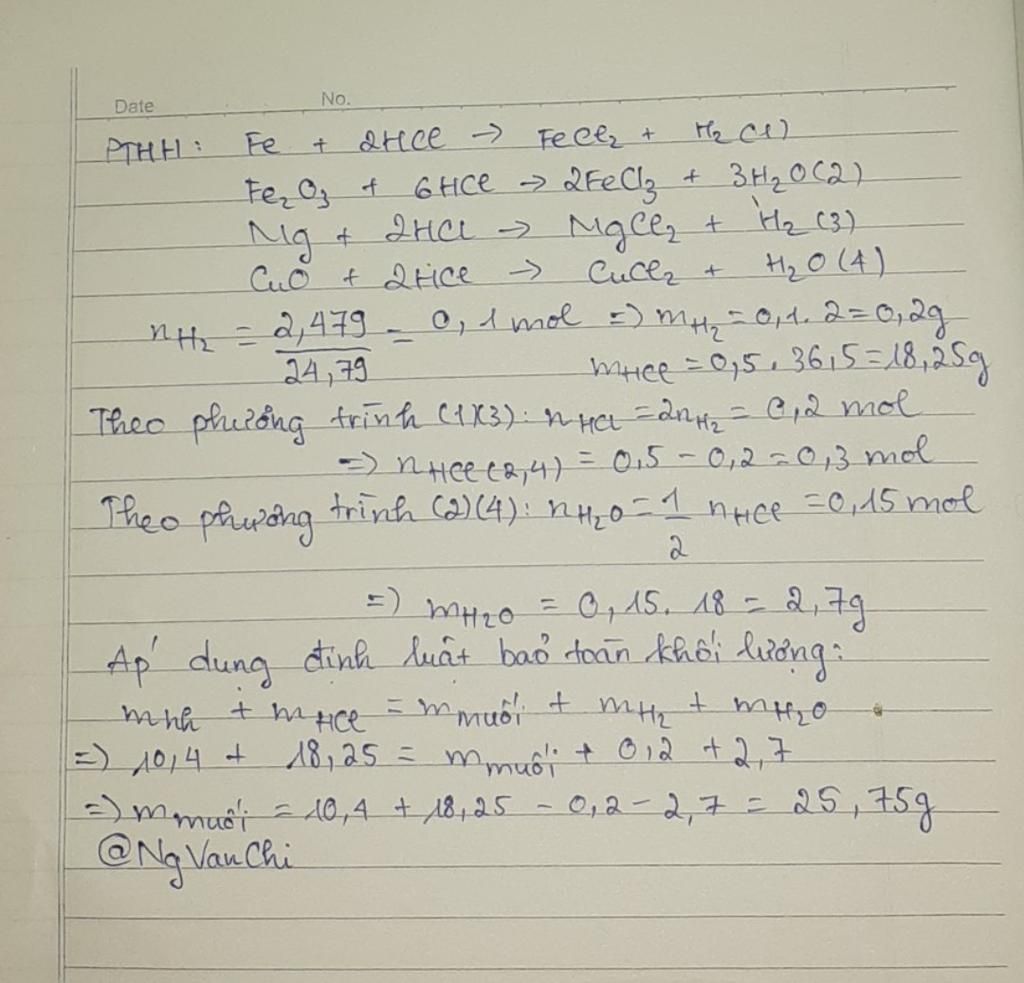 Date No.
PTHH: Fe + 2HCl → FeCl₂ + H₂ (1)
Fe₂O₃ + 6HCl → 2FeCl₃ + 3H₂O (2)
Mg + 2HCl → MgCl₂ + H₂ (3)
CuO + 2HCl → CuCl₂ + H₂O (4)
nH₂ = 2,479/24,79 = 0,1 mol => mH₂ = 0,1. 2 = 0,2g
mHCl = 0,5 . 36,5 = 18,25g
Theo phương trình (1)(3): nHCl = 2nH₂ = 0,2 mol
=> nHCl(2,4) = 0,5 - 0,2 = 0,3 mol
Theo phương trình (2)(4): nH₂O = 1/2 nHCl = 0,15 mol
=> mH₂O = 0,15. 18 = 2,7g
Áp dụng định luật bảo toàn khối lượng:
mhh + mHCl = mmuối + mH₂ + mH₂O
=> 10,4 + 18,25 = mmuối + 0,2 + 2,7
=> mmuối = 10,4 + 18,25 - 0,2 - 2,7 = 25,75g
@NgVanChi